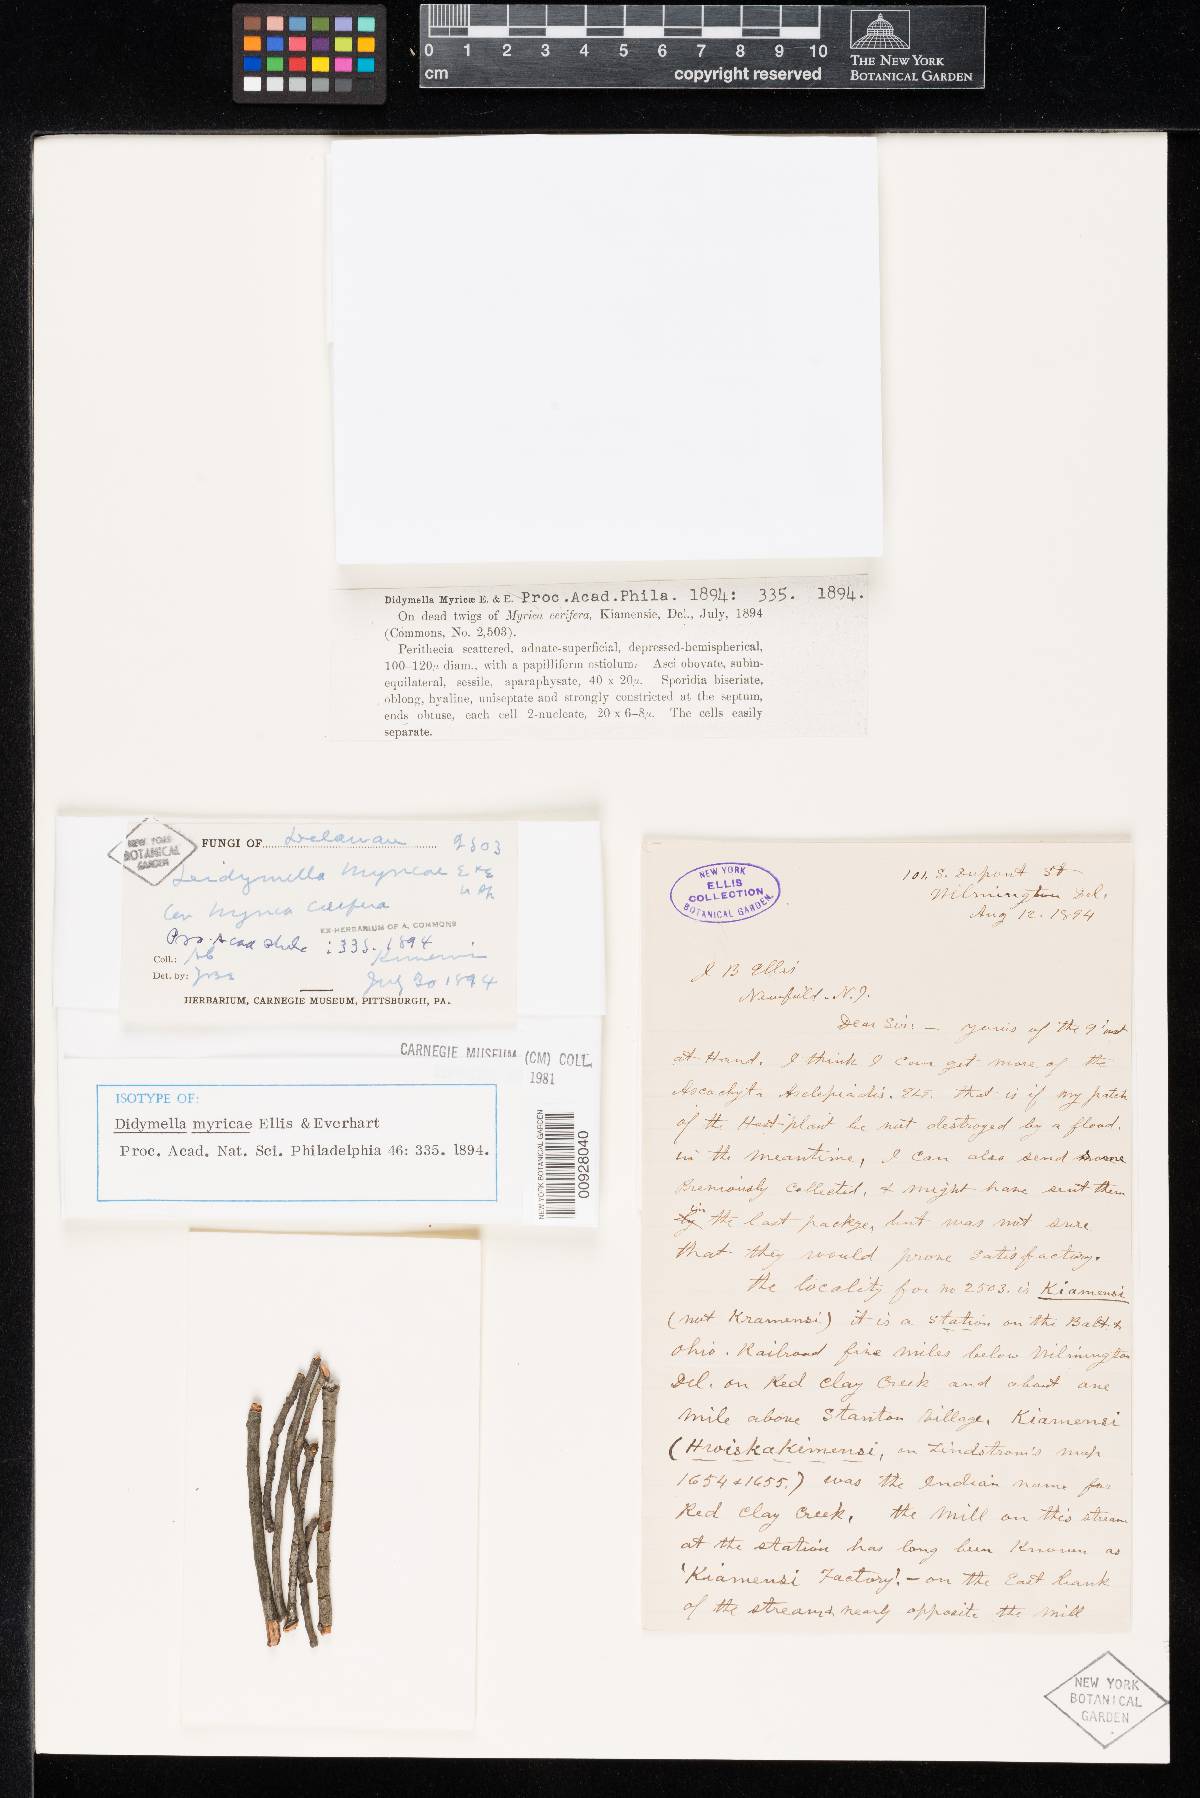 0 1 2 3 4 5 6 7 8 9 10
cm
copyright reserved
THE NEW YORK
BOTANICAL GARDEN
Didymella Myricæ E. & E. Proc.Acad.Phila. 1894: 335. 1894.
On dead twigs of Myrica cerifera, Kiamensie, Del., July, 1894
(Commons, No. 2,503).
Perithecia scattered, adnate-superficial, depressed-hemispherical,
100–120µ diam., with a papilliform ostiolum. Asci obovate, subin-
equilateral, sessile, aparaphysate, 40 x 20µ. Sporidia biseriate,
oblong, hyaline, uniseptate and strongly constricted at the septum,
ends obtuse, each cell 2-nucleate, 20 x 6–8µ. The cells easily
separate.
NEW YORK
BOTANICAL
GARDEN
FUNGI OF Delaware 2503
Didymella Myricae E & E
on Myrica cerifera
EX-HERBARIUM OF A. COMMONS
Pro. Acad Phila : 335. 1894
Coll.:
Det. by: July 20 1894
HERBARIUM, CARNEGIE MUSEUM, PITTSBURGH, PA.
CARNEGIE MUSEUM (CM) COLL.
1981
ISOTYPE OF:
Didymella myricae Ellis & Everhart
Proc. Acad. Nat. Sci. Philadelphia 46: 335. 1894.
NEW YORK BOTANICAL GARDEN
00928040
NEW YORK
ELLIS
COLLECTION
BOTANICAL GARDEN
101. S. Dupont St
Wilmington Del.
Aug 12. 1894
J B Ellis
Newfield. N.J.
Dear Sir: — yours of the 9' inst
at Hand. I think I can get more of the
Ascochyta Asclepiadis. E&E. that is if my patch
of the Host-plant be not destroyed by a flood.
in the meantime, I can also send some
Previously collected, & might have sent them
in the last packge, but was not sure
that they would prove satisfactory.
The locality for no 2503. is Kiamensi
(not Kramensi) it is a station on the Balt. &
Ohio. Railroad five miles below Wilmington
Del. on Red Clay Creek and about one
mile above Stanton Village. Kiamensi
(Hwiskakimensi, on Lindstrom's map
1654 & 1655.) was the Indian name for
Red Clay Creek, the Mill on this stream
at the station has long been Known as
'Kiamensi Factory'. — on the East bank
of the stream & nearly opposite the mill
NEW YORK
BOTANICAL
GARDEN